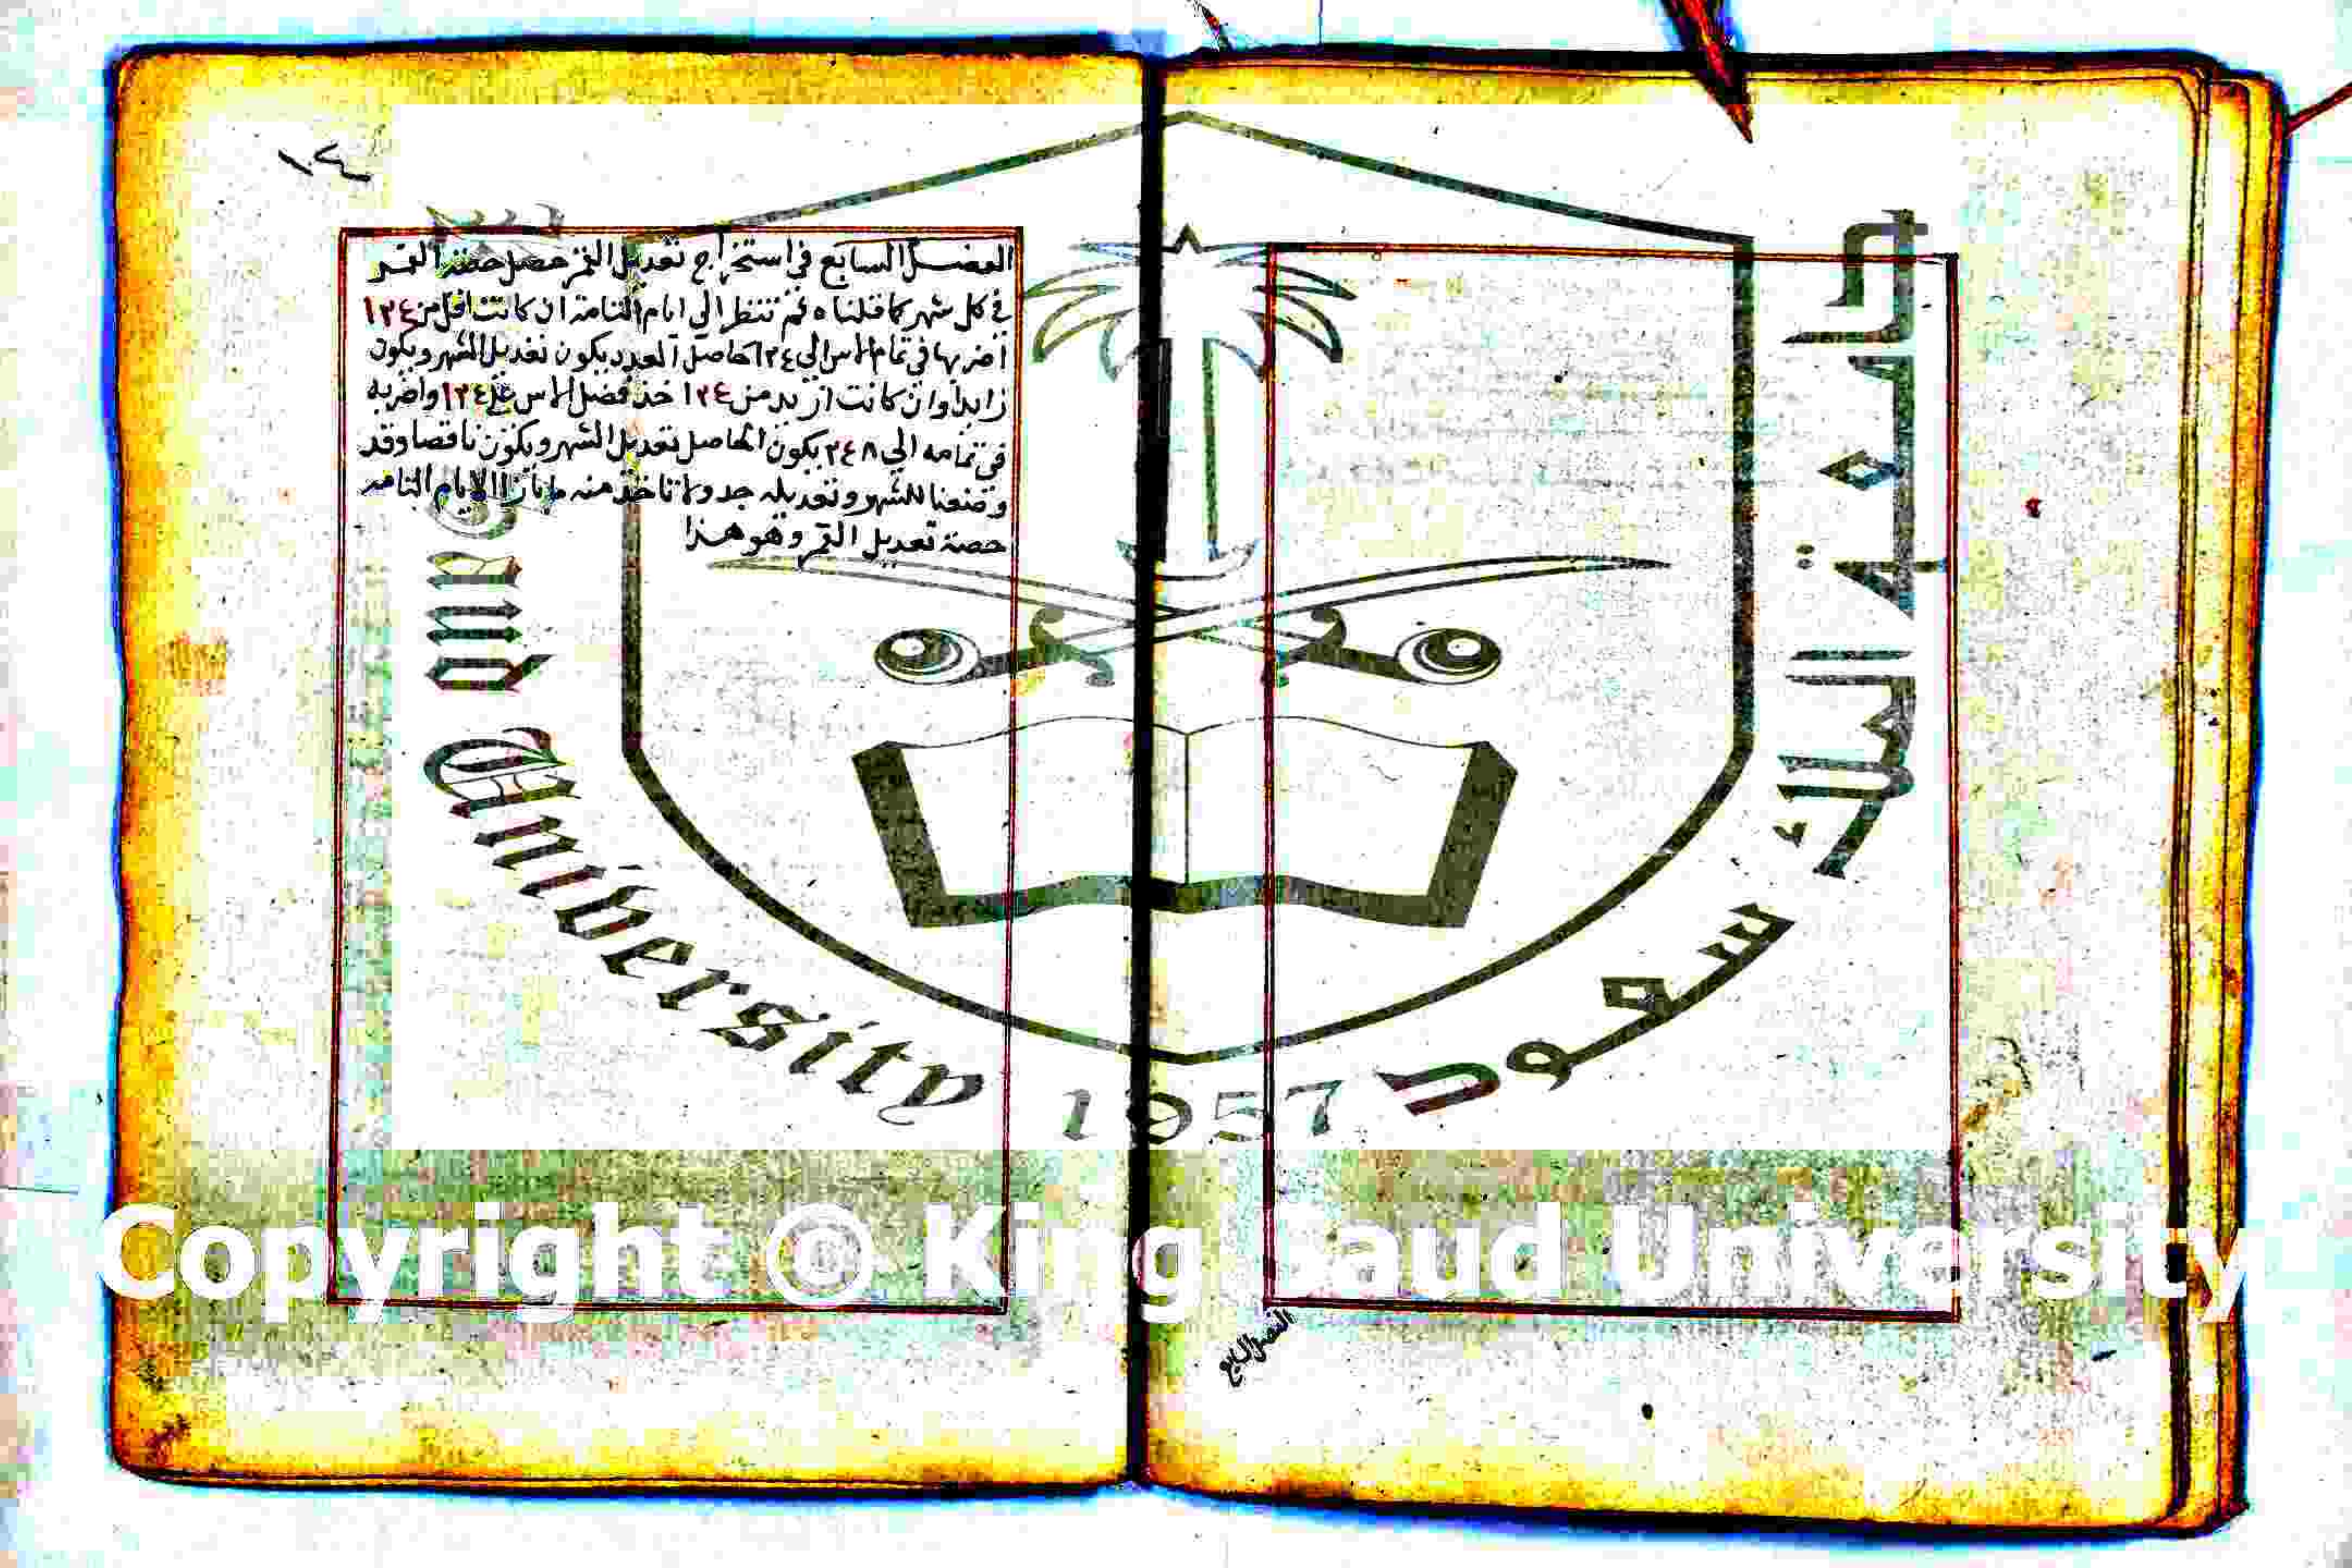 الفصل السابع في استخراج تعديل القمر حصل حصة القمر
في كل شهر كما قلناه ثم تنظر الي ايام التامة ان كانت اقل من ١٢٤
اضربها في تمام الاس الى ١٢٤ الحاصل العدد يكون تعديل الشهر ويكون
زايدا وان كانت ازيد من ١٢٤ خذ فضل الاس على ١٢٤ واضربه
في تمامه الي ٢٤٨ يكون الحاصل تعديل الشهر ويكون ناقصا وقد
وضعنا للشهر وتعديله جدولا تاخذ منه ما بازا الايام التامه
حصة تعديل القمر وهو هذا
الفصل السابع
جامعة الملك سعود
University
1957
Copyright © King Saud University